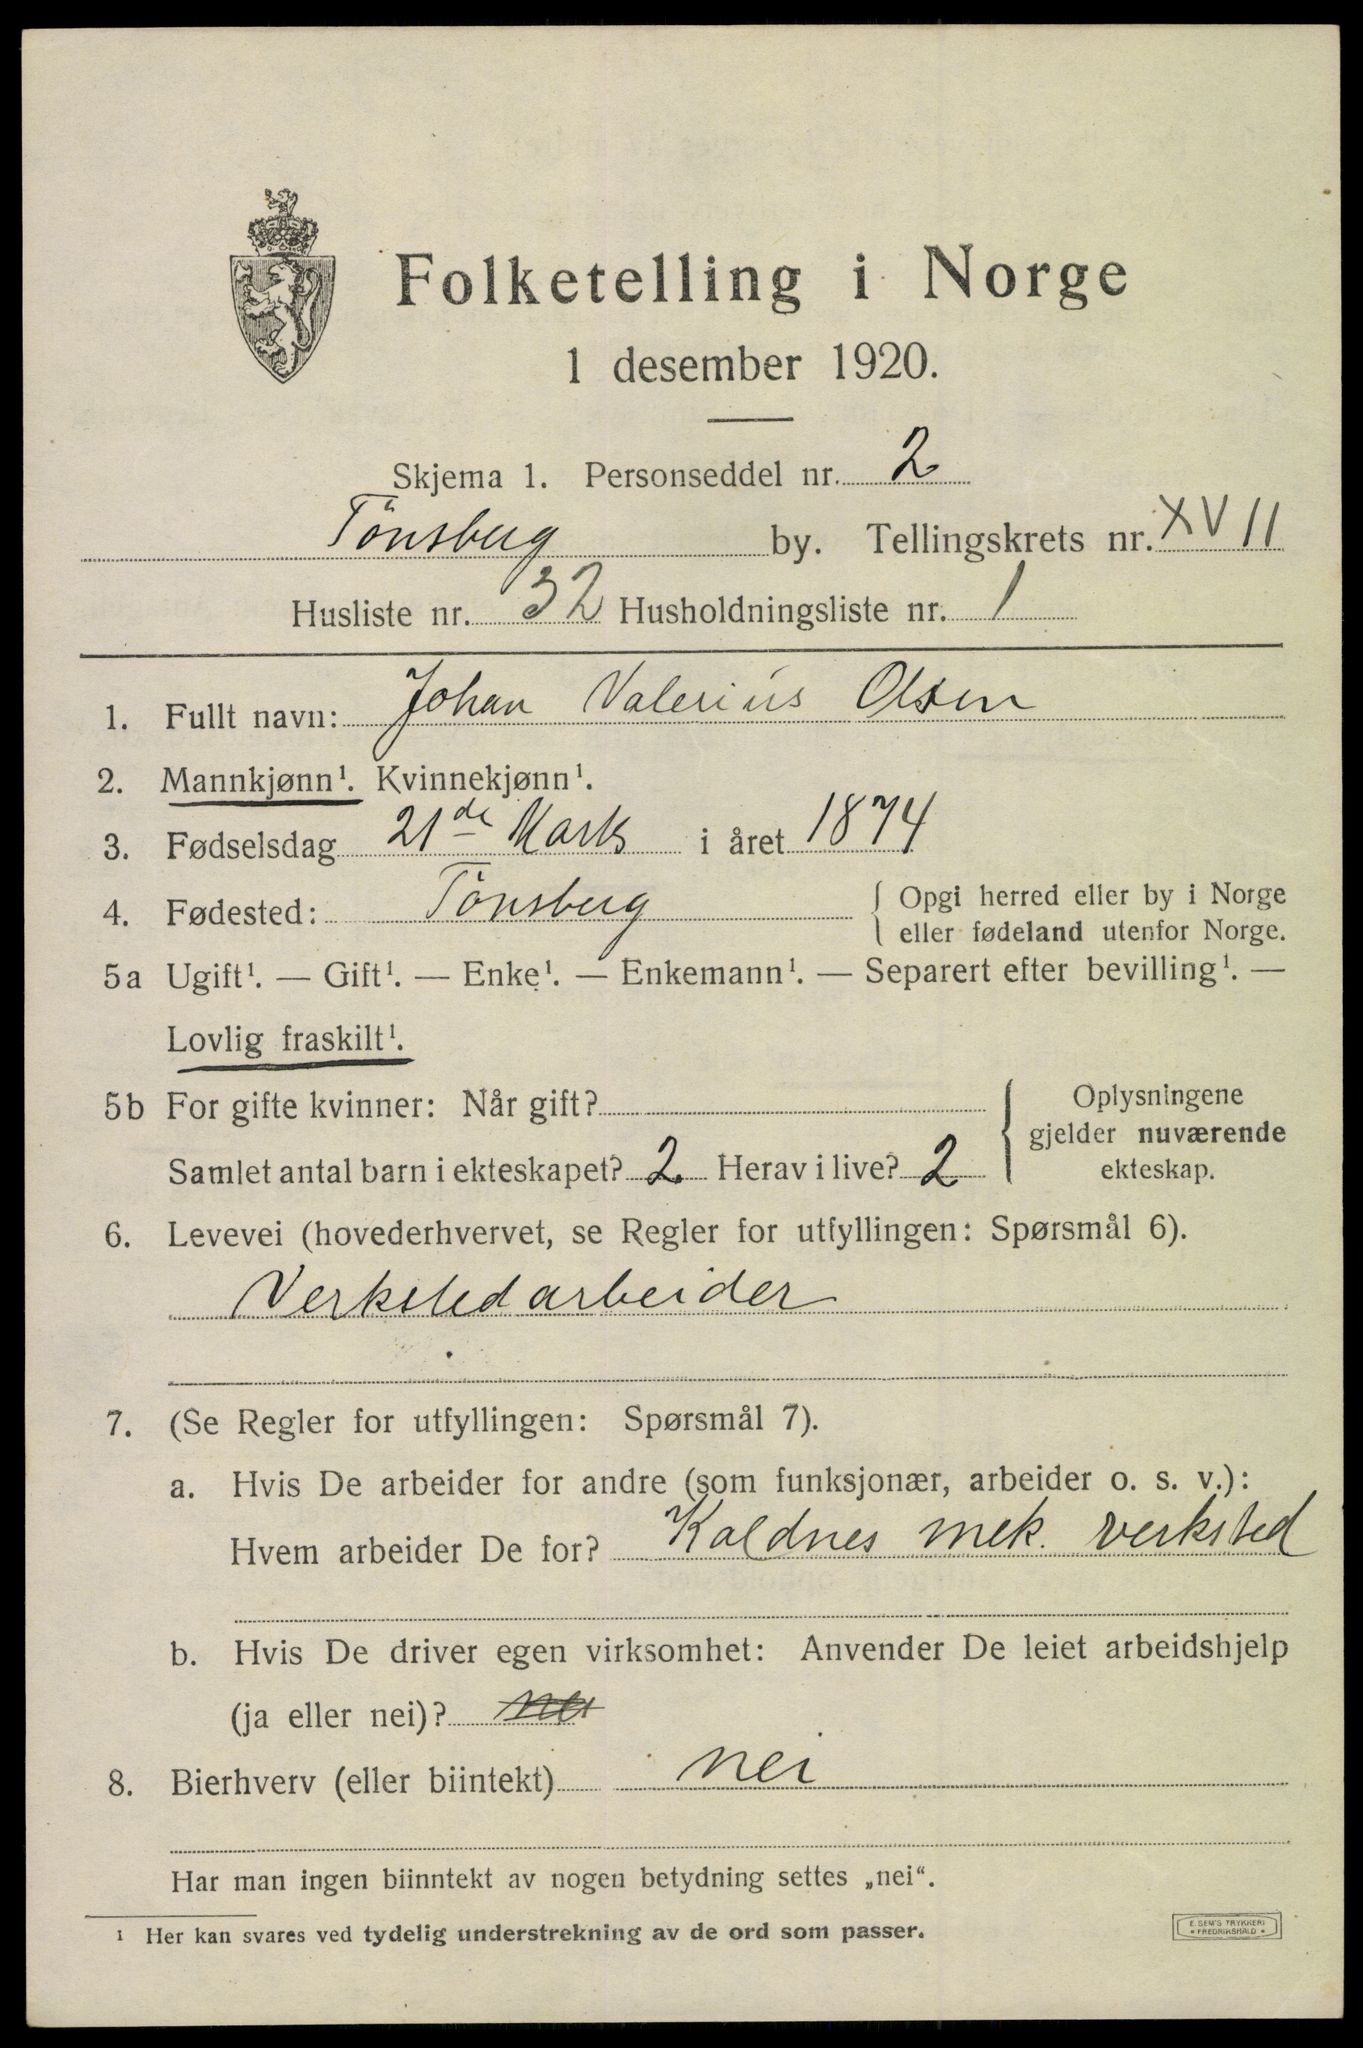 Folketelling i Norge
1 desember 1920.
Skjema 1. Personseddel nr. 2
Tönsberg by. Tellingskrets nr. XVII
Husliste nr. 32 Husholdningsliste nr. 1
1. Fullt navn: Johan Valerius Olsen
2. Mannkjønn¹. Kvinnekjønn¹.
3. Fødselsdag 21de Marts i året 1874
4. Fødested: Tönsberg { Opgi herred eller by i Norge
eller fødeland utenfor Norge.
5a Ugift¹. — Gift¹. — Enke¹. — Enkemann¹. — Separert efter bevilling¹. —
Lovlig fraskilt¹.
5b For gifte kvinner: Når gift?
Samlet antal barn i ekteskapet? 2. Herav i live? 2
{ Oplysningene
gjelder nuværende
ekteskap.
6. Levevei (hovederhvervet, se Regler for utfyllingen: Spørsmål 6).
Verkstedarbeider
7. (Se Regler for utfyllingen: Spørsmål 7).
a. Hvis De arbeider for andre (som funksjonær, arbeider o. s. v.):
Hvem arbeider De for? Kaldnes mek. verksted
b. Hvis De driver egen virksomhet: Anvender De leiet arbeidshjelp
(ja eller nei)? nei
8. Bierhverv (eller biintekt) nei
Har man ingen biinntekt av nogen betydning settes „nei“.
¹ Her kan svares ved tydelig understrekning av de ord som passer.
E. SEM'S TRYKKERI
• FREDRIKSHALD •